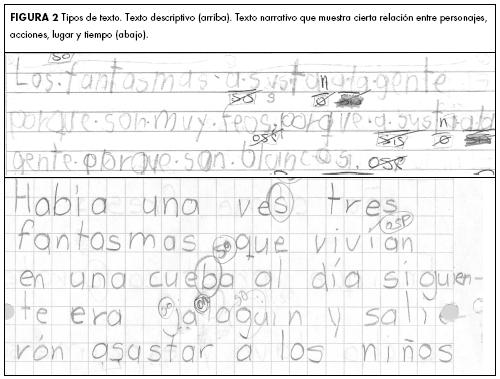 FIGURA 2 Tipos de texto. Texto descriptivo (arriba). Texto narrativo que muestra cierta relación entre personajes,
acciones, lugar y tiempo (abajo).
so
Los·fantasmas·a·sustan·a·la·gente
porque·son·muy·feos·porque·a·sustan·a·la
gente·porque·son·blancos.
Había una ves tres
fantasmas que vivían
en una cueba al día siguien-
te era jaloguin y salie
rón asustar a los niños